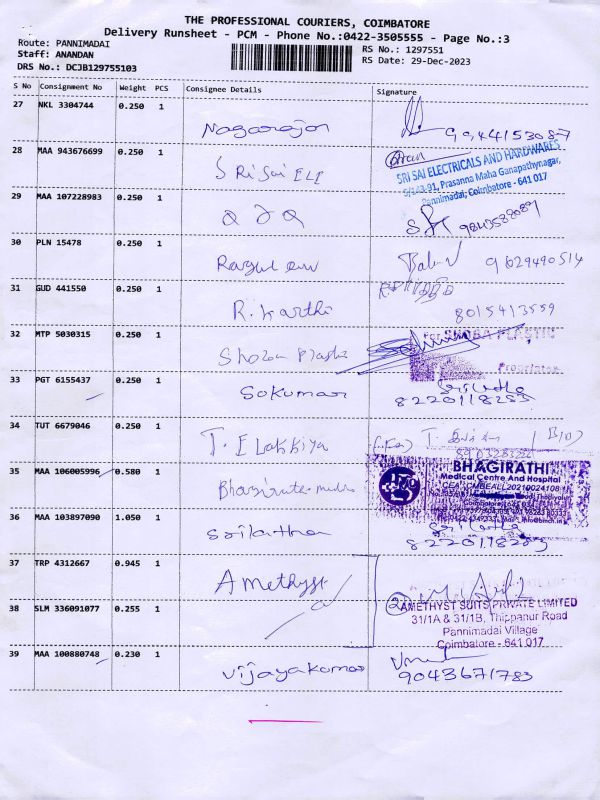 THE PROFESSIONAL COURIERS, COIMBATORE
Delivery Runsheet - PCM - Phone No.:0422-3505555 - Page No.:3
Route: PANNIMADAI
Staff: ANANDAN
DRS No.: DCJB129755103
RS No.: 1297551
RS Date: 29-Dec-2023
S No Consignment No Weight PCS Consignee Details Signature
27 NKL 3304744 0.250 1 Nagarajan 9944153087
28 MAA 943676699 0.250 1 SRi Sai ELE
SRI SAI ELECTRICALS AND HARDWARES
5/143-91, Prasanna Maha Ganapathynagar,
Pannimadai, Coimbatore - 641 017
29 MAA 107228983 0.250 1
30 PLN 15478 0.250 1 9629490514
31 GUD 441550 0.250 1 R. karthi 8015413559
32 MTP 5030315 0.250 1 Shoba Plastic
For SHOBA PLASTIC
Proprietor
33 PGT 6155437 0.250 1 Sokumar
8220118283
34 TUT 6679046 0.250 1 T. Elakkiya
35 MAA 106005996 0.580 1
BHAGIRATHI
Medical Centre And Hospital
36 MAA 103897090 1.050 1 Srilatha
8220118283
37 TRP 4312667 0.945 1 Amethyst
38 SLM 336091077 0.255 1
AMETHYST SUITS PRIVATE LIMITED
31/1A & 31/1B, Thippanur Road
Pannimadai Village
Coimbatore - 641 017
39 MAA 100880748 0.230 1 Vijayakumar
9043671783